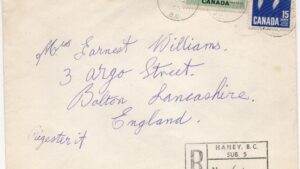 CANADA
15
CANADA
Mrs Earnest Williams.
3 Argo Street.
Bolton Lancashire.
England.
Register it
R
HANEY, B.C.
SUB. 5